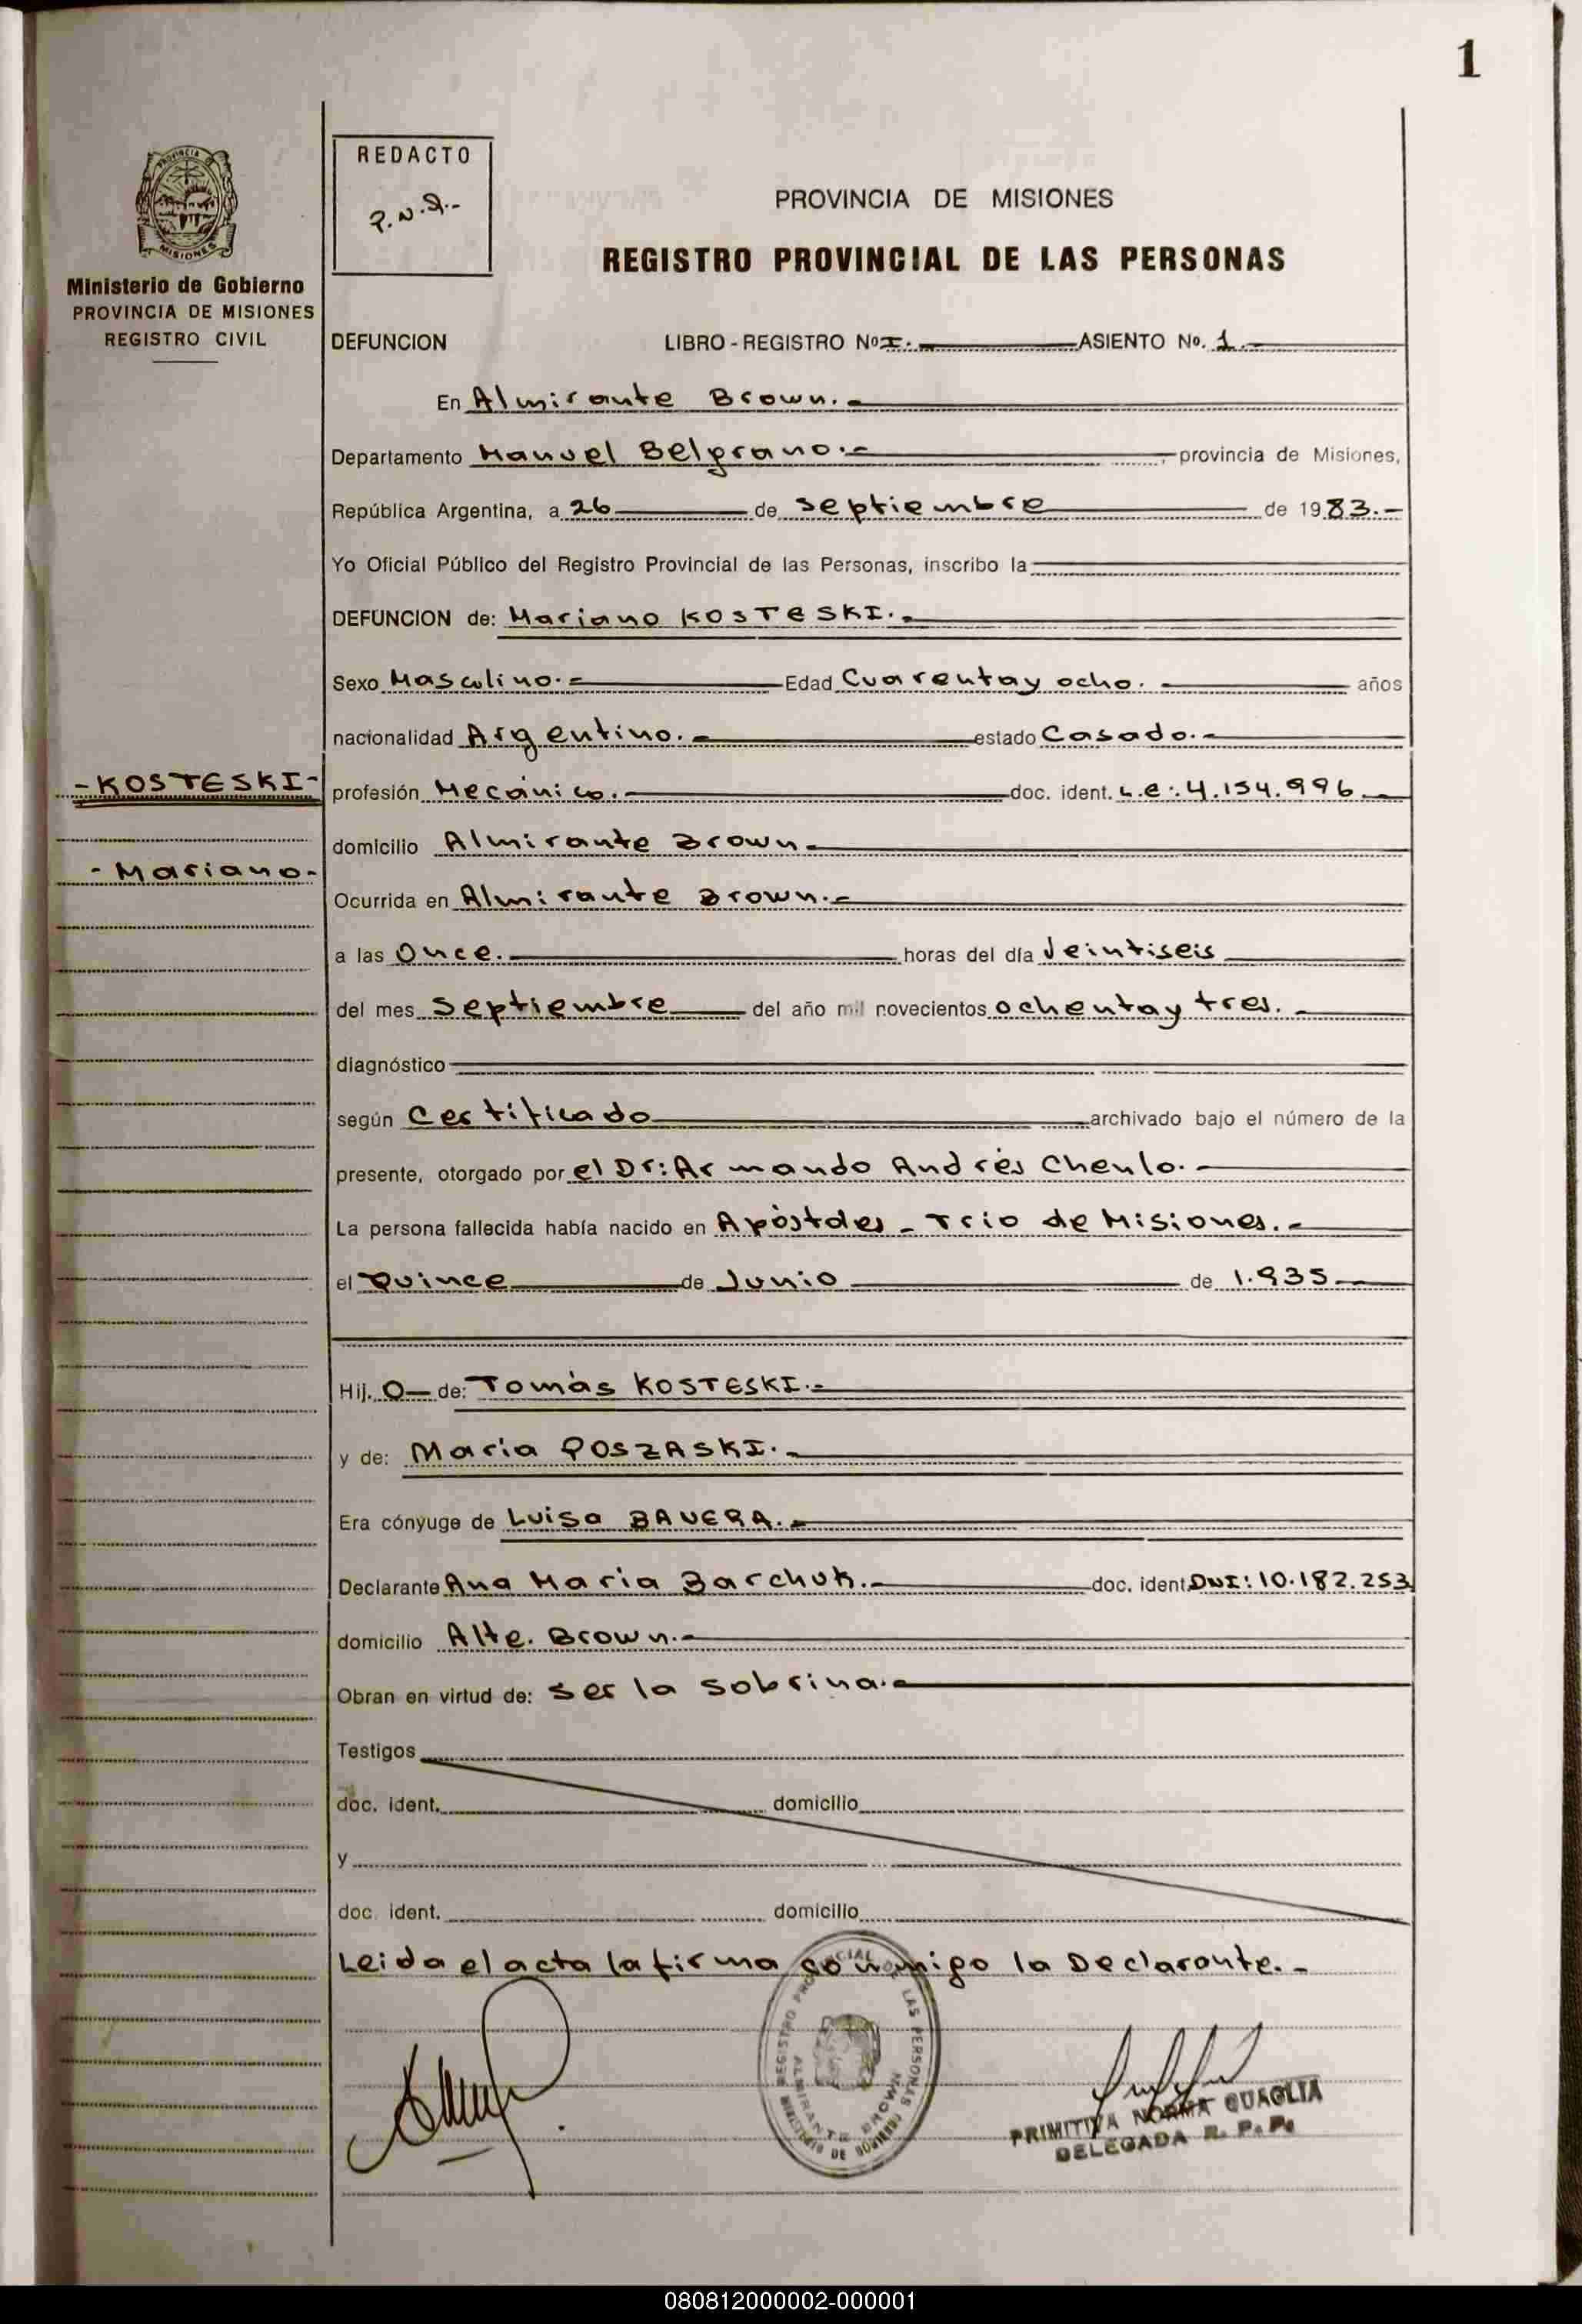 1
REDACTO
P.N.Q.-
PROVINCIA DE MISIONES
REGISTRO PROVINCIAL DE LAS PERSONAS
Ministerio de Gobierno
PROVINCIA DE MISIONES
REGISTRO CIVIL
DEFUNCION LIBRO - REGISTRO Nº I.- ASIENTO Nº. 1.-
En Almirante Brown.-
Departamento Manuel Belgrano.- , provincia de Misiones,
República Argentina, a 26 de septiembre de 1983.-
Yo Oficial Público del Registro Provincial de las Personas, inscribo la
DEFUNCION de: Mariano KOSTESKI.-
Sexo Masculino.- Edad Cuarenta y ocho. años
nacionalidad Argentino.- estado Casado.-
-KOSTESKI-
profesión Mecánico.- doc. ident. L.e:.4.154.996
domicilio Almirante Brown-
-Mariano-
Ocurrida en Almirante Brown.-
a las Once. horas del día Veintiseis
del mes Septiembre del año mil novecientos ochenta y tres.-
diagnóstico
según Certificado archivado bajo el número de la
presente, otorgado por el Dr: Armando Andrés Chenlo.-
La persona fallecida había nacido en Apóstoles - Trio de Misiones.-
el Quince de Junio de 1.935
Hij. o de: Tomás KOSTESKI.-
y de: María POSZASKI.-
Era cónyuge de Luisa BAVERA.-
Declarante Ana María Barchuk.- doc. ident. DNI: 10.182.253
domicilio Alte. Brown.-
Obran en virtud de: Ser la sobrina.-
Testigos
doc. ident. domicilio
y
doc. ident. domicilio
Leida el acta la firma conmigo la Declarante.-
REGISTRO PROVINCIAL DE LAS PERSONAS
ALMIRANTE BROWN
MINISTERIO DE GOBIERNO
PRIMITIVA NORMA QUAGLIA
DELEGADA R. P. P.
080812000002-000001